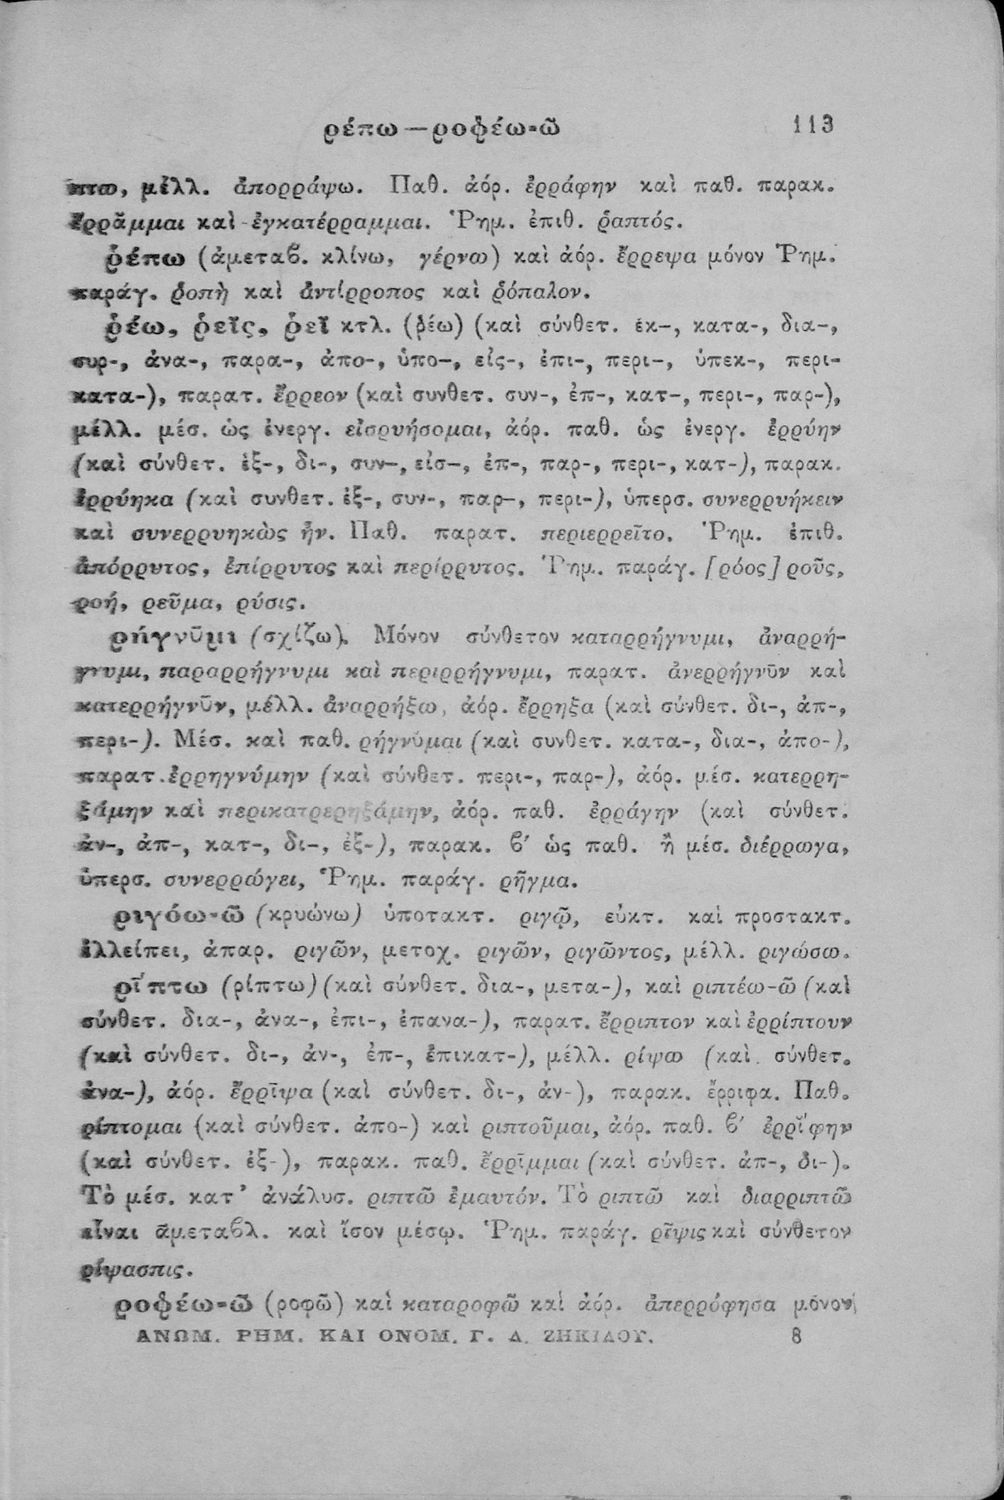 ρέπω — ροφέω-ῶ 113
πτω, μέλλ. ἀπορράψω. Παθ. ἀόρ. ἐρράφην καὶ παθ. παρακ.
ἔρραμμαι καὶ ἐγκατέρραμμαι. Ῥημ. ἐπιθ. ῥαπτός.
ῥέπω (ἀμεταβ. κλίνω, γέρνω) καὶ ἀόρ. ἔρρεψα μόνον Ῥημ.
παράγ. ῥοπὴ καὶ ἀντίρροπος καὶ ῥόπαλον.
ῥέω, ῥεῖς, ῥεῖ κτλ. (ῥέω) (καὶ σύνθετ. ἐκ-, κατα-, δια-,
συρ-, ἀνα-, παρα-, ἀπο-, ὑπο-, εἰς-, ἐπι-, περι-, ὑπεκ-, περι-
κατα-), παρατ. ἔρρεον (καὶ συνθετ. συν-, ἐπ-, κατ-, περι-, παρ-),
μέλλ. μέσ. ὡς ἐνεργ. εἰσρυήσομαι, ἀόρ. παθ. ὡς ἐνεργ. ἐρρύην
(καὶ σύνθετ. ἐξ-, δι-, συν-, εἰσ-, ἐπ-, παρ-, περι-, κατ-), παρακ.
ἐρρύηκα (καὶ συνθετ. ἐξ-, συν-, παρ-, περι-), ὑπερσ. συνερρυήκειν
καὶ συνερρυηκὼς ἦν. Παθ. παρατ. περιερρεῖτο. Ῥημ. ἐπιθ.
ἀπόρρυτος, ἐπίρρυτος καὶ περίρρυτος. Ῥημ. παράγ. [ρόος] ροῦς,
ροή, ρεῦμα, ρύσις.
ρήγνῡμι (σχίζω). Μόνον σύνθετον καταρρήγνυμι, ἀναρρή-
γνυμι, παραρρήγνυμι καὶ περιρρήγνυμι, παρατ. ἀνερρήγνῡν καὶ
κατερρήγνῡν, μέλλ. ἀναρρήξω, ἀόρ. ἔρρηξα (καὶ σύνθετ. δι-, ἀπ-,
περι-). Μέσ. καὶ παθ. ρήγνῡμαι (καὶ συνθετ. κατα-, δια-, ἀπο-),
παρατ. ἐρρηγνύμην (καὶ σύνθετ. περι-, παρ-), ἀόρ. μέσ. κατερρη-
ξάμην καὶ περικατρερηξάμην, ἀόρ. παθ. ἐρράγην (καὶ σύνθετ.
ἀν-, ἀπ-, κατ-, δι-, ἐξ-), παρακ. β′ ὡς παθ. ἢ μέσ. διέρρωγα,
ὑπερσ. συνερρώγει, Ῥημ. παράγ. ρῆγμα.
ριγόω-ῶ (κρυώνω) ὑποτακτ. ριγῷ, εὐκτ. καὶ προστακτ.
ἐλλείπει, ἀπαρ. ριγῶν, μετοχ. ριγῶν, ριγῶντος, μέλλ. ριγώσω.
ρῑ́πτω (ρίπτω) (καὶ σύνθετ. δια-, μετα-), καὶ ριπτέω-ῶ (καὶ
σύνθετ. δια-, ἀνα-, ἐπι-, ἐπανα-), παρατ. ἔρριπτον καὶ ἐρρίπτουν
(καὶ σύνθετ. δι-, ἀν-, ἐπ-, ἐπικατ-), μέλλ. ρίψω (καὶ σύνθετ.
ἀνα-), ἀόρ. ἔρρῑψα (καὶ σύνθετ. δι-, ἀν-), παρακ. ἔρριφα. Παθ.
ρίπτομαι (καὶ σύνθετ. ἀπο-) καὶ ριπτοῦμαι, ἀόρ. παθ. β′ ἐρρῐ́φην
(καὶ σύνθετ. ἐξ-), παρακ. παθ. ἔρρῑμμαι (καὶ σύνθετ. ἀπ-, δι-).
Τὸ μέσ. κατ' ἀνάλυσ. ριπτῶ ἐμαυτόν. Τὸ ριπτῶ καὶ διαρριπτῶ
εἶναι ἀμεταβλ. καὶ ἴσον μέσῳ. Ῥημ. παράγ. ρῖψις καὶ σύνθετον
ρίψασπις.
ροφέω-ῶ (ροφῶ) καὶ καταροφῶ καὶ ἀόρ. ἀπερρόφησα μόνον
ΑΝΩΜ. ΡΗΜ. ΚΑΙ ΟΝΟΜ. Γ. Δ. ΖΗΚΙΔΟΥ. 8